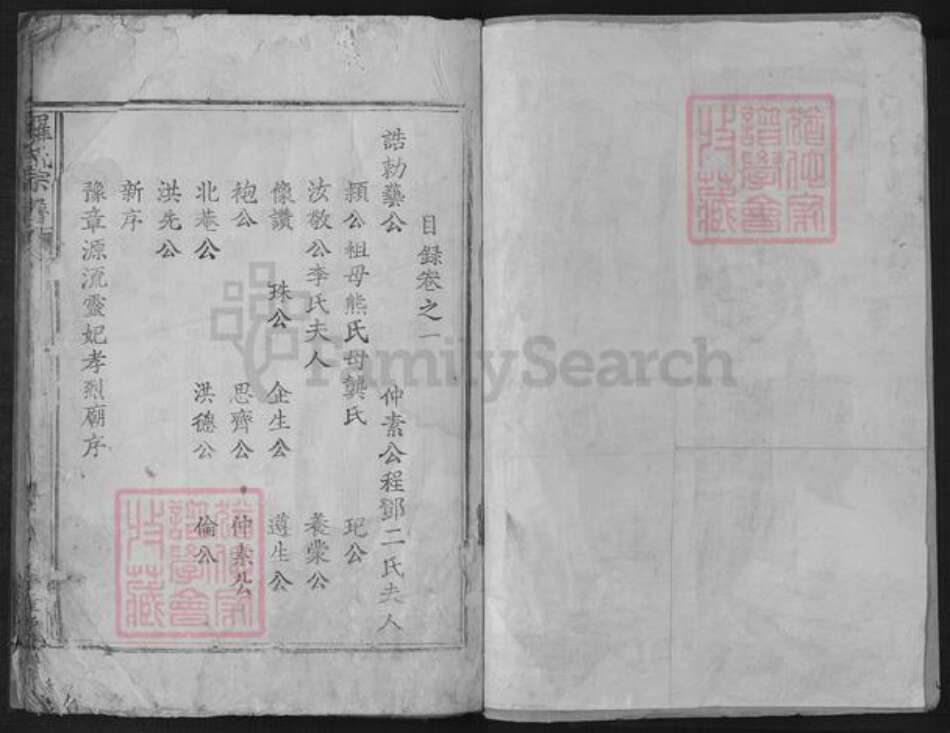 目録卷之一
誥勅藥公 仲素公程鄧二氏夫人
頴公祖母熊氏母龔氏 玘公
汝敬公李氏夫人 養蒙公
像讚 珠公 企生公 遵生公
袍公 思齊公 仲素公
北菴公 洪德公 倫公
洪先公
新序
豫章源流靈妃孝烈廟序
羅氏宗譜
FamilySearch